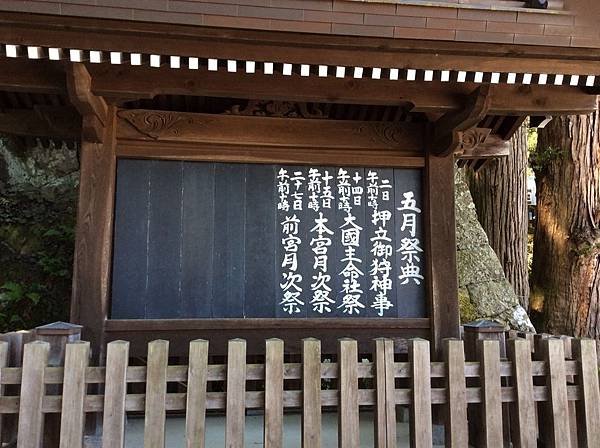 五月祭典
二日
午前十時
押立御狩神事
十四日
午前十時
大國主命社祭
十五日
午前十時
本宮月次祭
二十七日
午前十時
前宮月次祭